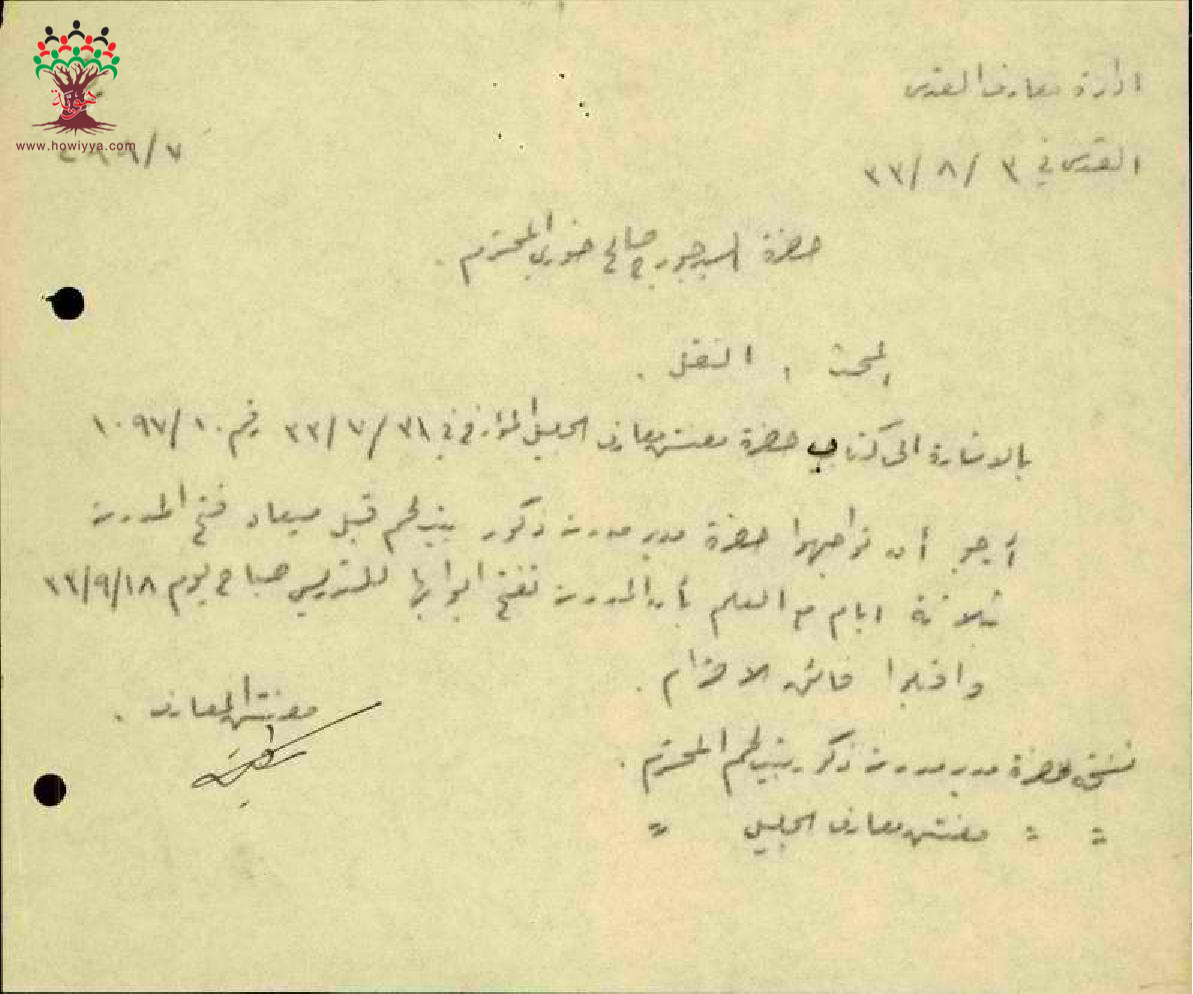 هوية
www.howiyya.com
ادارة معارف القدس
القدس في ٣ / ٨ / ٣٣
٧/
حضرة السيد جورج صالح خوري المحترم .
المبحث : النقل .
بالاشارة الى كتاب حضرة مفتش معارف الجليل المؤرخ في ٣١ / ٧ / ٣٣ رقم ١٠ / ١٠٩٧
أرجو أن تواجهوا حضرة مدير مدرسة ذكور بيت لحم قبل ميعاد فتح المدرسة
ثلاثة ايام مع العلم بأن المدرسة تفتح ابوابها للتدريس صباح يوم ١٨/٩/٣٣
واقبلوا فائق الاحترام .
مفتش المعارف .
نسخة حضرة مدير مدرسة ذكور بيت لحم المحترم .
" " مفتش معارف الجليل "